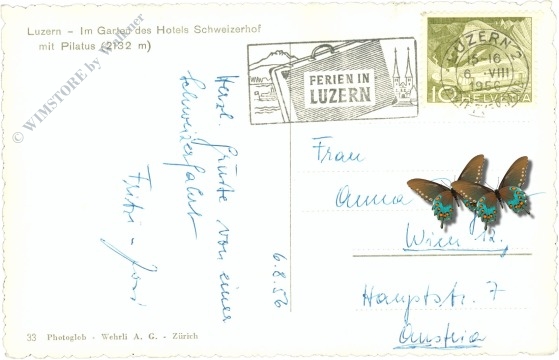 Luzern – Im Garten des Hotels Schweizerhof
mit Pilatus (2132 m)
© WIMSTORE by Wallner
FERIEN IN
LUZERN
LUZERN 2
15-16
6. VIII
1956
10 HELVETIA
Herzl. Grüsse von einer
Schweizerfahrt
Fritzi –
6.8.56
Frau
Anna
Wien 12.,
Hauptstr. 7
Austria
33 Photogleb - Wehrli A. G. - Zürich